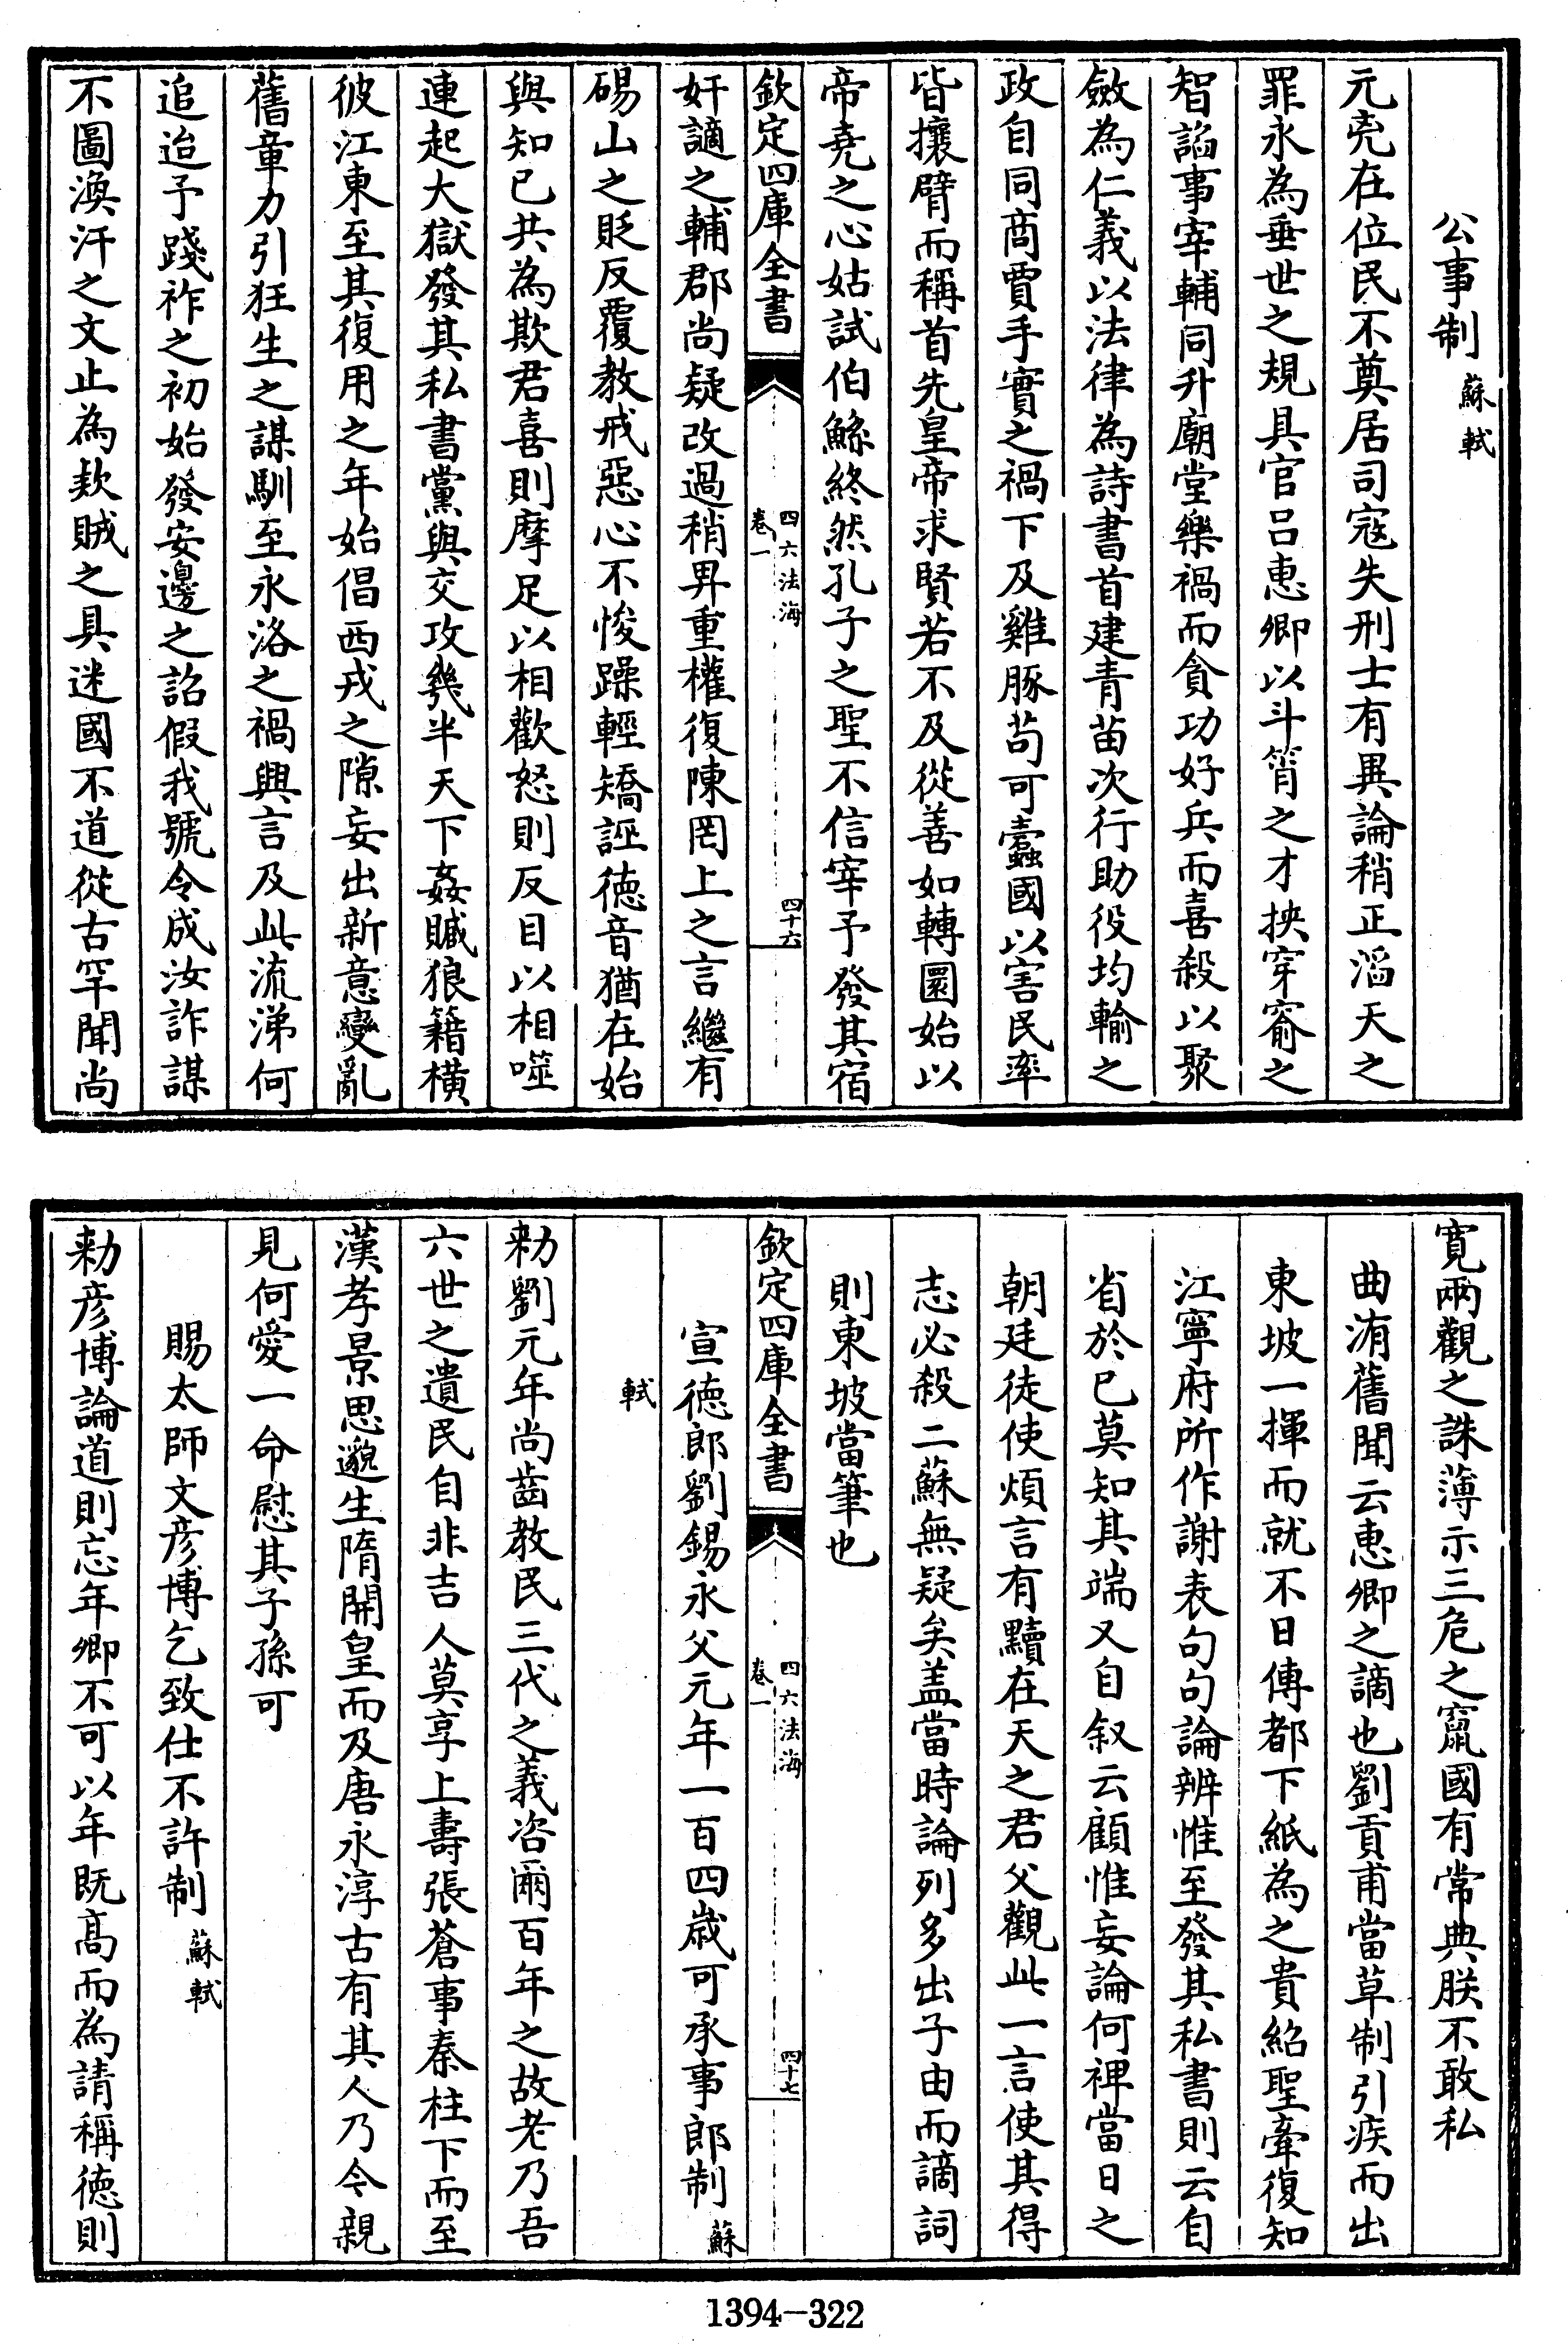 公事制 蘇軾
元兇在位民不奠居司寇失刑士有異論稍正滔天之
罪永為垂世之規具官呂惠卿以斗筲之才挾穿窬之
智諂事宰輔同升廟堂樂禍而貪功好兵而喜殺以聚
斂為仁義以法律為詩書首建青苗次行助役均輸之
政自同商賈手實之禍下及雞豚苟可蠹國以害民率
皆攘臂而稱首先皇帝求賢若不及從善如轉圜始以
帝堯之心姑試伯鯀終然孔子之聖不信宰予發其宿
欽定四庫全書
四六法海
卷一
四十六
奸謫之輔郡尚疑改過稍畀重權復陳罔上之言繼有
碭山之貶反覆教戒惡心不悛躁輕矯誣徳音猶在始
與知己共為欺君喜則摩足以相歡怒則反目以相噬
連起大獄發其私書黨與交攻幾半天下姦贓狼籍橫
彼江東至其復用之年始倡西戎之隙妄出新意變亂
舊章力引狂生之謀馴至永洛之禍興言及此流涕何
追迨予踐祚之初始發安邊之詔假我號令成汝詐謀
不圖渙汗之文止為欵賊之具迷國不道從古罕聞尚
寛兩觀之誅薄示三危之竄國有常典朕不敢私
曲洧舊聞云惠卿之謫也劉貢甫當草制引疾而出
東坡一揮而就不日傳都下紙為之貴紹聖牽復知
江寧府所作謝表句句論辨惟至發其私書則云自
省於己莫知其端又自叙云顧惟妄論何裨當日之
朝廷徒使煩言有黷在天之君父觀此一言使其得
志必殺二蘇無疑矣盖當時論列多出子由而謫詞
則東坡當筆也
欽定四庫全書
四六法海
卷一
四十七
宣徳郎劉錫永父元年一百四歲可承事郎制 蘇
軾
勅劉元年尚齒教民三代之義咨爾百年之故老乃吾
六世之遺民自非吉人莫享上壽張蒼事秦柱下而至
漢孝景思邈生隋開皇而及唐永淳古有其人乃今親
見何愛一命慰其子孫可
賜太師文彦博乞致仕不許制 蘇軾
勅彦博論道則忘年卿不可以年既髙而為請稱徳則
1394-322